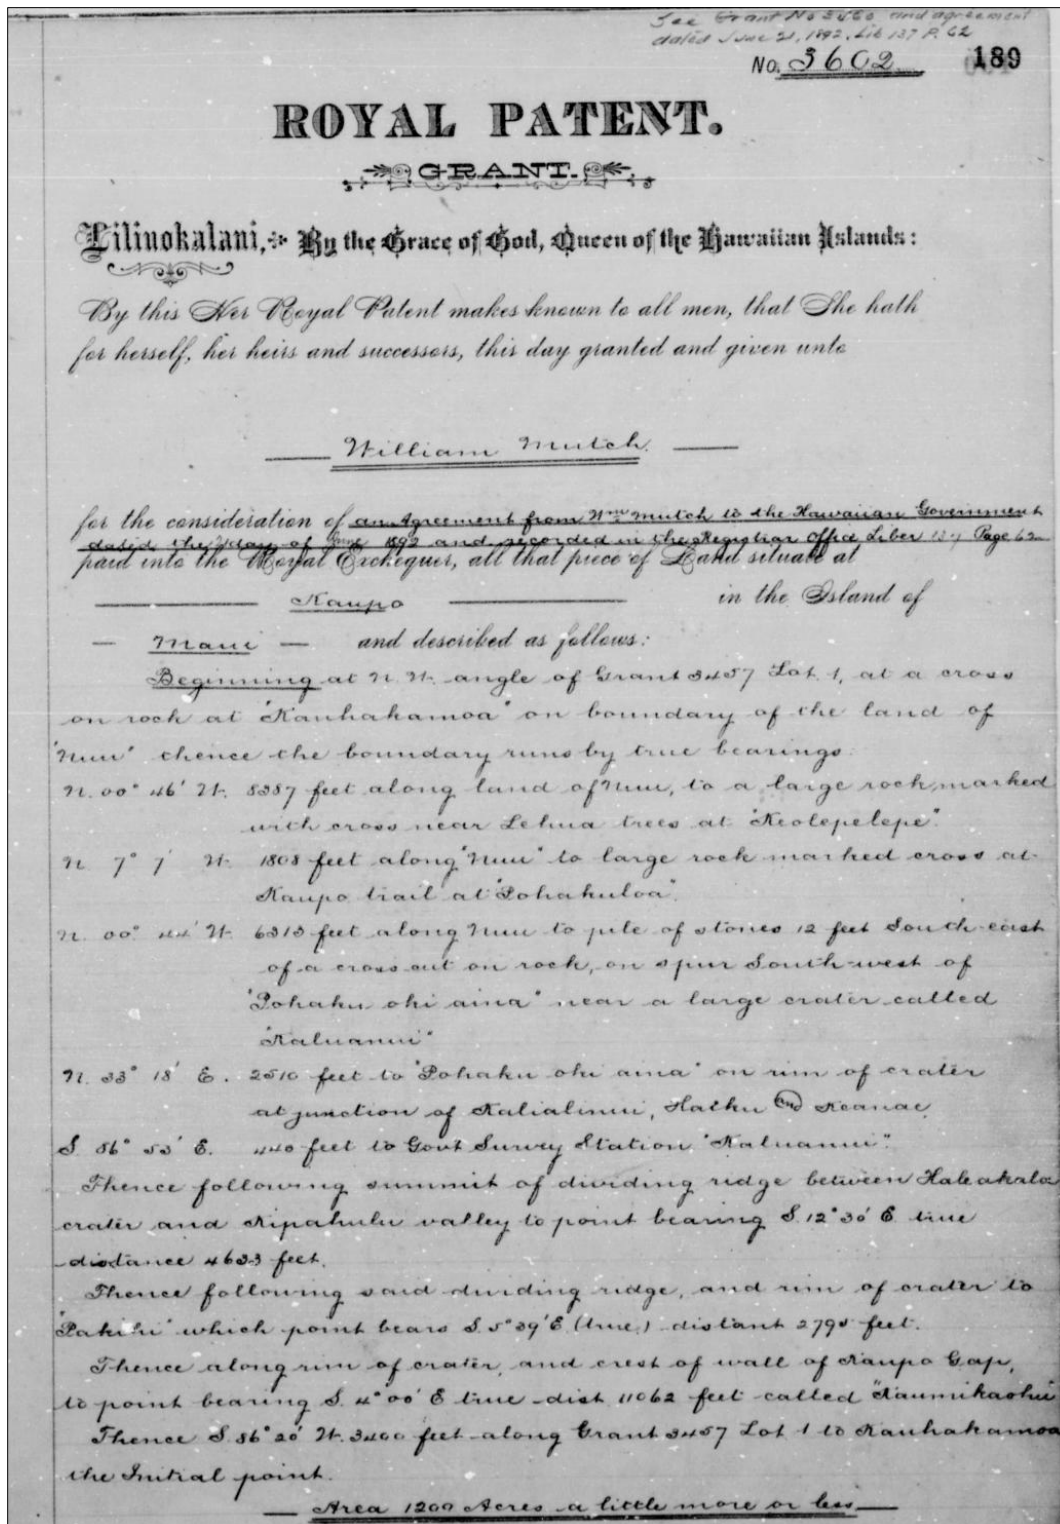 See Grant No 3450 and agreement
dated June 21, 1892, Lib 137 P. 62
No. 3602 189
ROYAL PATENT.
GRANT.
Liliuokalani, By the Grace of God, Queen of the Hawaiian Islands:
By this Her Royal Patent makes known to all men, that She hath
for herself, her heirs and successors, this day granted and given unto
William Mutch.
for the consideration of an Agreement from Wm Mutch to the Hawaiian Government
dated the day of June 1892 and recorded in the Registrar Office Liber 137 Page 62
paid into the Royal Exchequer, all that piece of Land situate at
Kaupo in the Island of
Maui and described as follows:
Beginning at N. W. angle of Grant 3457 Lot. 1, at a cross
on rock at "Kauhakamoa" on boundary of the land of
"Nuu" thence the boundary runs by true bearings.
N. 00° 46' W. 8387 feet along land of Nuu, to a large rock, marked
with cross near Lehua trees at "Keolepelepe".
N 7° 7' W. 1808 feet along "Nuu" to large rock marked cross at
Kaupo trail at "Pohakuloa".
N. 00° 44' W. 6313 feet along Nuu to pile of stones 12 feet South-east
of a cross cut on rock, on spur South-west of
"Pohaku oki aina" near a large crater called
"Kaluanui"
N. 33° 18' E. 2510 feet to "Pohaku oki aina" on rim of crater
at junction of Kalialinui, Haiku and Keanae.
S. 86° 53' E. 440 feet to Govt Survey Station "Kaluanui".
Thence following summit of dividing ridge between Haleakala
crater and Kipahulu valley to point bearing S. 12° 30' E. true
distance 4633 feet.
Thence following said dividing ridge, and rim of crater to
"Pakihi" which point bears S. 5° 39' E. (true) distant 2795 feet.
Thence along rim of crater, and crest of wall of Kaupo Gap,
to point bearing S. 4° 00' E true dist. 11062 feet called "Kaumikaohu"
Thence S. 86° 20' W. 3400 feet along Grant 3457 Lot 1 to Kauhakamoa
the Initial point.
Area 1200 Acres a little more or less